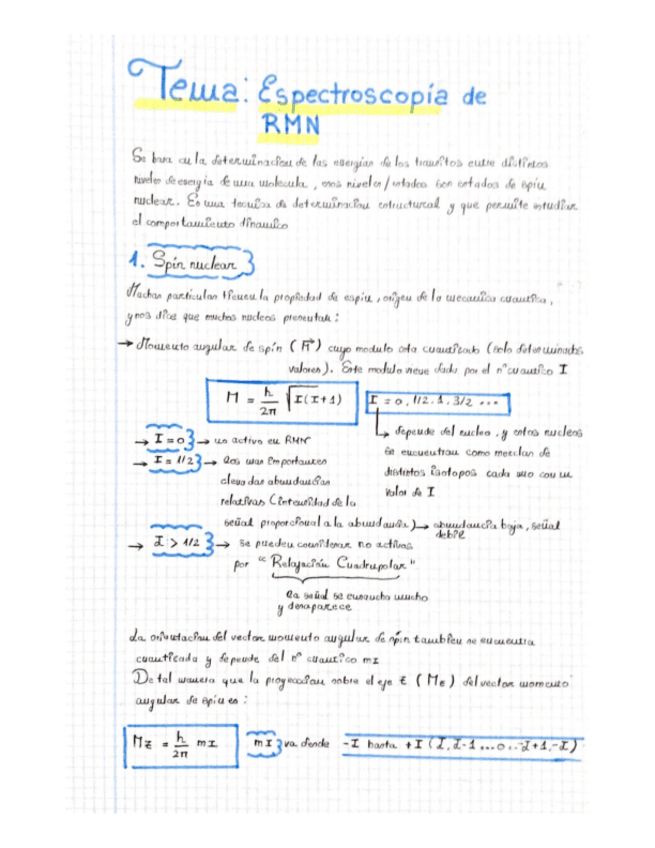 Tema: Espectroscopía de
RMN
Se basa en la determinacion de las energias de los transitos entre distintos
niveles de energia de una molecula, esos niveles/estados son estados de spin
nuclear. Es una tecnica de determinacion estructural y que permite estudiar
el comportamiento dinamico
1. Spin nuclear
Muchas particulas tienen la propiedad de espin, origen de la mecanica cuantica,
y nos dice que muchos nucleos presentan:
→ Momento angular de spin (M⃗) cuyo modulo esta cuantizado (solo determinados
valores). Este modulo viene dado por el nº cuantico I
M = h/2π √I(I+1)   I = 0, 1/2, 1, 3/2 ...
→ I=0 → no activo en RMN
→ I = 1/2 → Los mas importantes
elevadas abundancias
relativas (intensidad de la
señal proporcional a la abundancia) → abundancia baja, señal
debil
↳ depende del nucleo, y estos nucleos
se encuentran como mezclas de
distintos isotopos cada uno con un
valor de I
→ I > 1/2 → se pueden considerar no activos
por "Relajación Cuadrupolar"
La señal se ensancha mucho
y desaparece
La orientacion del vector momento angular de spin tambien se encuentra
cuantizada y depende del nº cuantico mI
De tal manera que la proyeccion sobre el eje z (Mz) del vector momento
angular de espin es:
Mz = h/2π mI   mI va desde -I hasta +I (I, I-1 ...0...-I+1,-I)